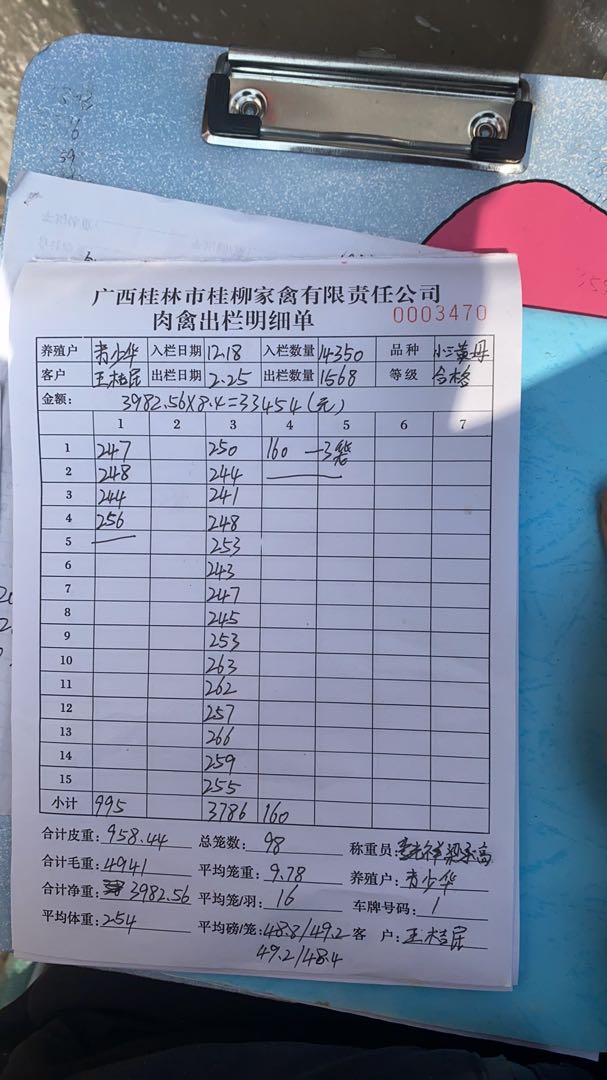 广西桂林市桂柳家禽有限责任公司
肉禽出栏明细单 0003470
养殖户 少华 入栏日期 12.18 入栏数量 14350 品种 小三黄母
客户 出栏日期 2.25 出栏数量 1568 等级 合格
金额: 3982.56×8.4=33454(元)
1 2 3 4 5 6 7
1 247 250 160 —3笼
2 248 244
3 244 241
4 256 248
5 253
6 243
7 247
8 245
9 253
10 263
11 262
12 257
13 266
14 259
15 255
小计 995 3786 160
合计皮重: 958.44 总笼数: 98 称重员:
合计毛重: 4941 平均笼重: 9.78 养殖户: 少华
合计净重: 3982.56 平均笼/羽: 16 车牌号码: 1
平均体重: 2.54 平均磅/笼: 48.8/49.2 客 户:
49.2/48.4